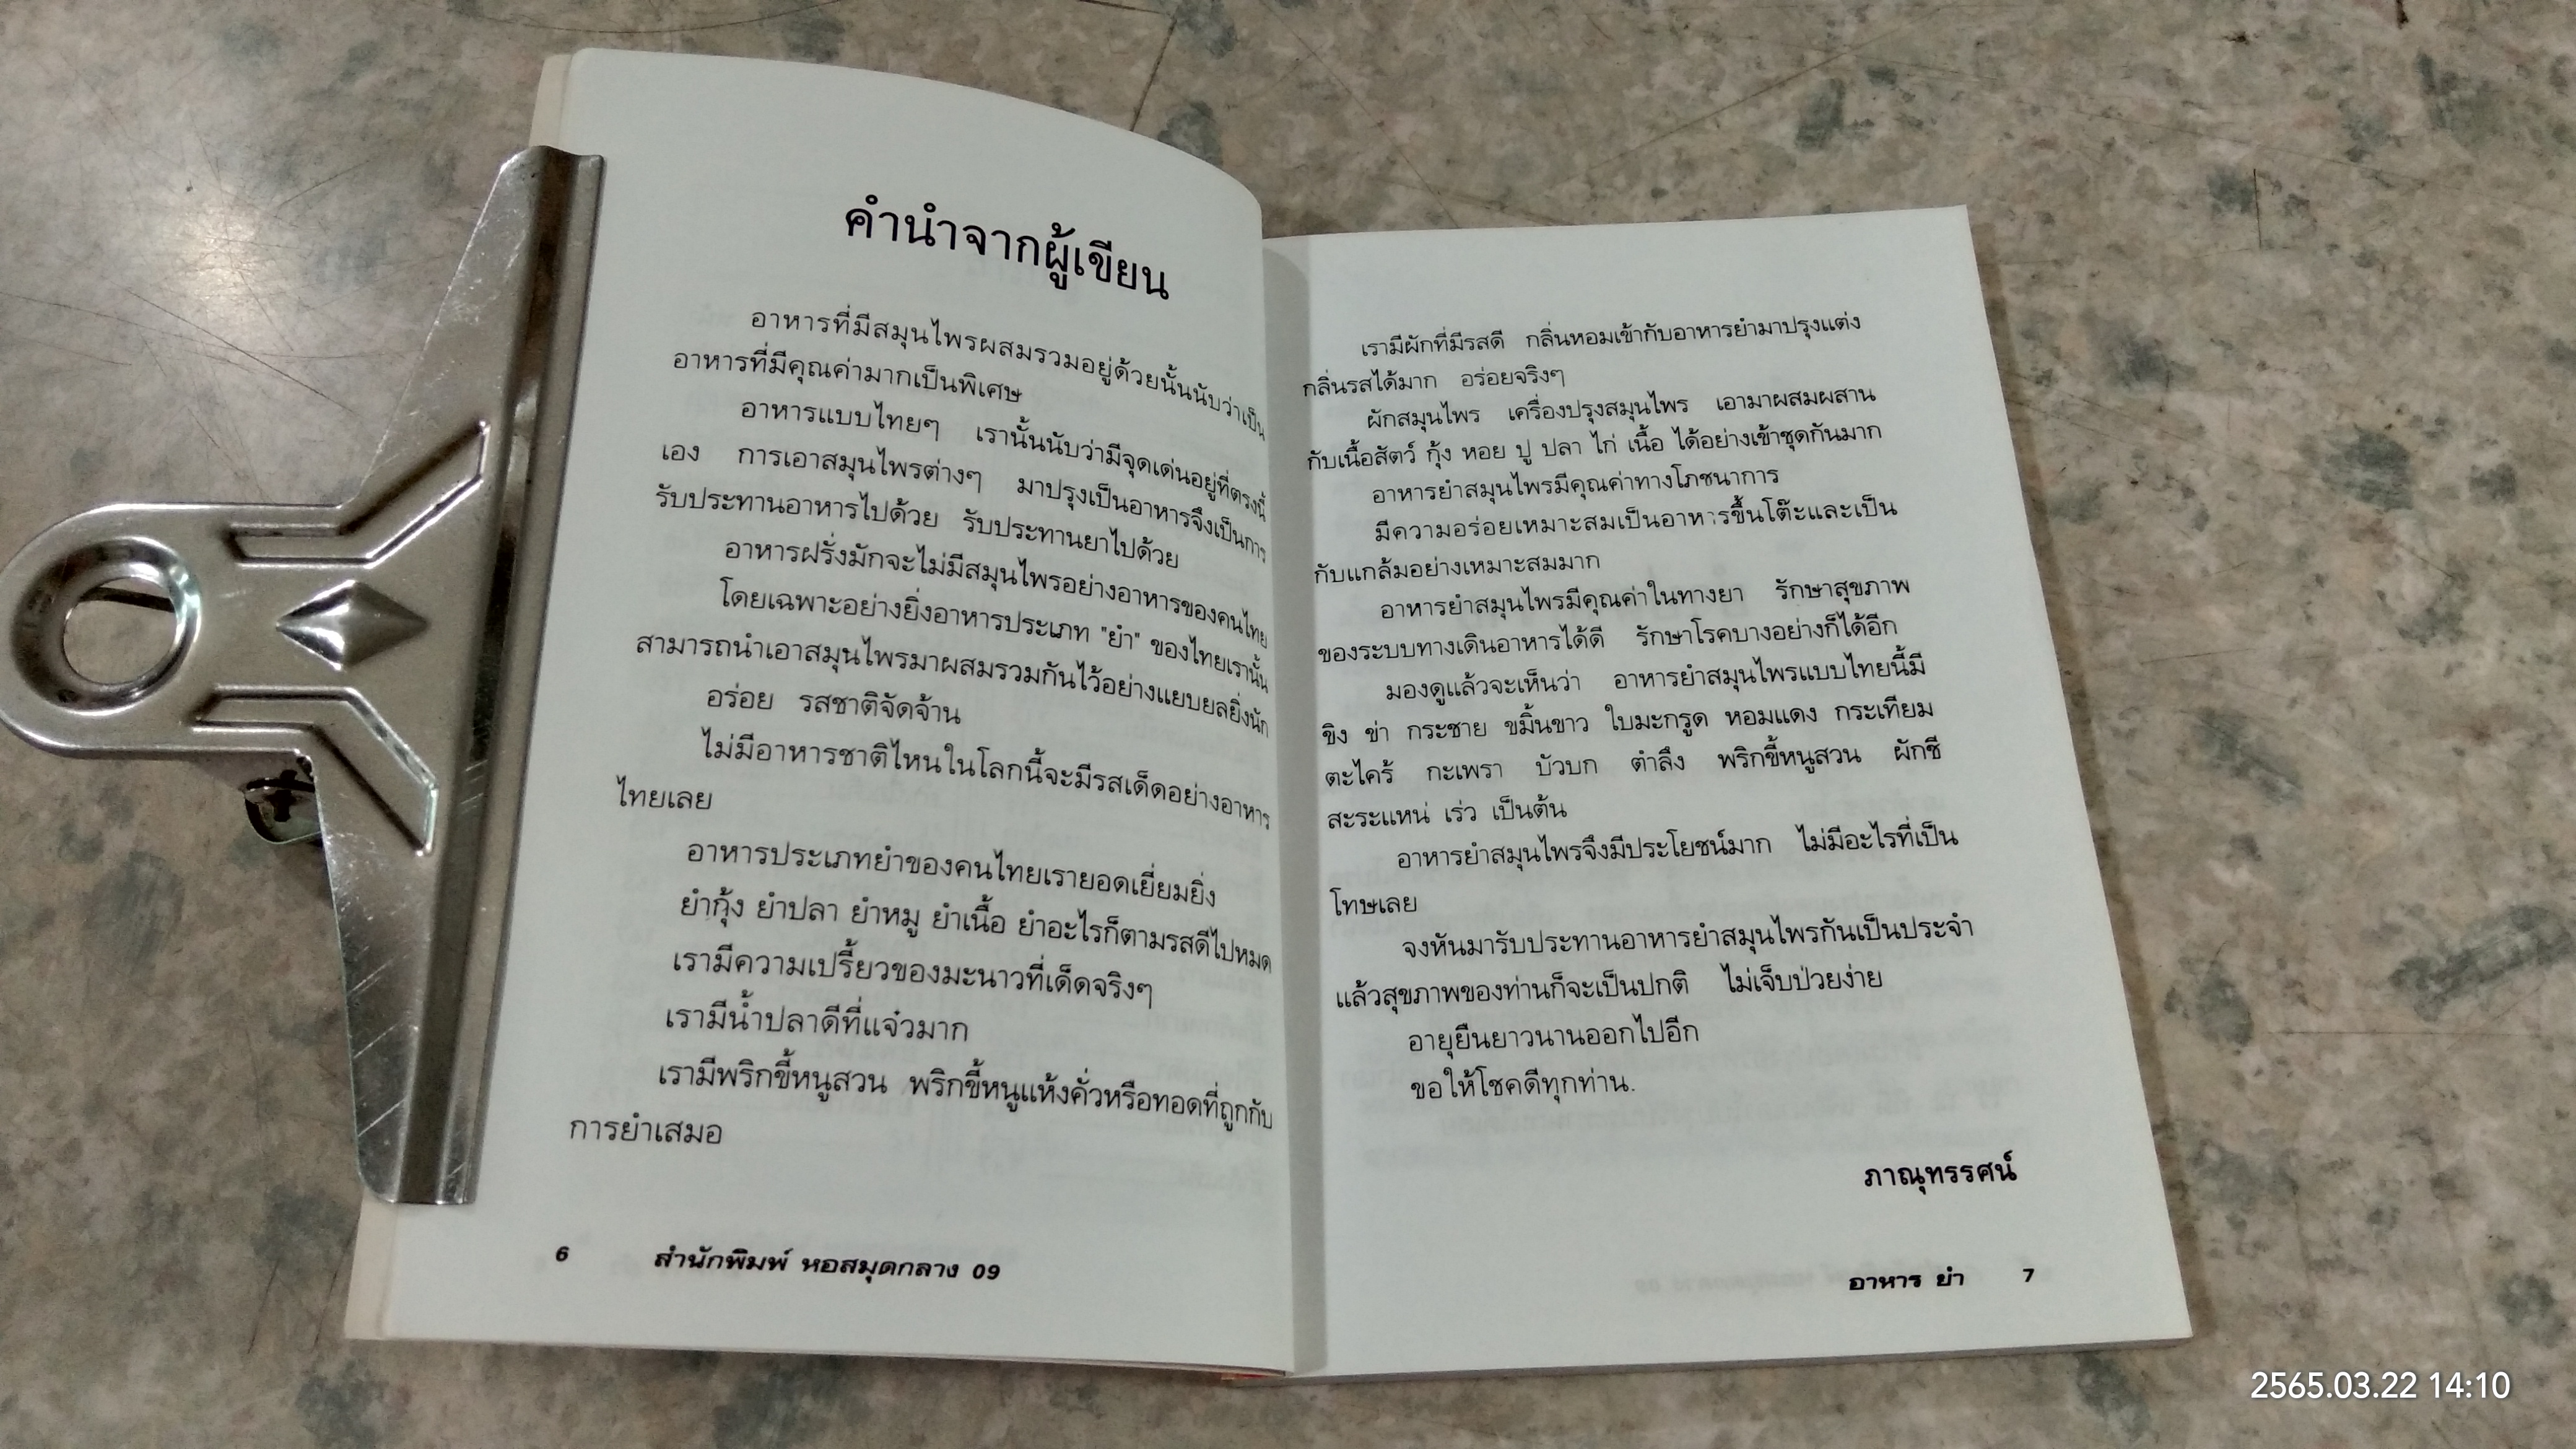 คำนำจากผู้เขียน
อาหารที่มีสมุนไพรผสมรวมอยู่ด้วยนั้นนับว่าเป็น
อาหารที่มีคุณค่ามากเป็นพิเศษ
อาหารแบบไทยๆ เรานั้นนับว่ามีจุดเด่นอยู่ที่ตรงนี้
เอง การเอาสมุนไพรต่างๆ มาปรุงเป็นอาหารจึงเป็นการ
รับประทานอาหารไปด้วย รับประทานยาไปด้วย
อาหารฝรั่งมักจะไม่มีสมุนไพรอย่างอาหารของคนไทย
โดยเฉพาะอย่างยิ่งอาหารประเภท "ยำ" ของไทยเรานั้น
สามารถนำเอาสมุนไพรมาผสมรวมกันไว้อย่างแยบยลยิ่งนัก
อร่อย รสชาติจัดจ้าน
ไม่มีอาหารชาติไหนในโลกนี้จะมีรสเด็ดอย่างอาหาร
ไทยเลย
อาหารประเภทยำของคนไทยเรายอดเยี่ยมยิ่ง
ยำกุ้ง ยำปลา ยำหมู ยำเนื้อ ยำอะไรก็ตามรสดีไปหมด
เรามีความเปรี้ยวของมะนาวที่เด็ดจริงๆ
เรามีน้ำปลาดีที่แจ๋วมาก
เรามีพริกขี้หนูสวน พริกขี้หนูแห้งคั่วหรือทอดที่ถูกกับ
การยำเสมอ
6 สำนักพิมพ์ หอสมุดกลาง 09
เรามีผักที่มีรสดี กลิ่นหอมเข้ากับอาหารยำมาปรุงแต่ง
กลิ่นรสได้มาก อร่อยจริงๆ
ผักสมุนไพร เครื่องปรุงสมุนไพร เอามาผสมผสาน
กับเนื้อสัตว์ กุ้ง หอย ปู ปลา ไก่ เนื้อ ได้อย่างเข้าชุดกันมาก
อาหารยำสมุนไพรมีคุณค่าทางโภชนาการ
มีความอร่อยเหมาะสมเป็นอาหารขึ้นโต๊ะและเป็น
กับแกล้มอย่างเหมาะสมมาก
อาหารยำสมุนไพรมีคุณค่าในทางยา รักษาสุขภาพ
ของระบบทางเดินอาหารได้ดี รักษาโรคบางอย่างก็ได้อีก
มองดูแล้วจะเห็นว่า อาหารยำสมุนไพรแบบไทยนี้มี
ขิง ข่า กระชาย ขมิ้นขาว ใบมะกรูด หอมแดง กระเทียม
ตะไคร้ กะเพรา บัวบก ตำลึง พริกขี้หนูสวน ผักชี
สะระแหน่ เร่ว เป็นต้น
อาหารยำสมุนไพรจึงมีประโยชน์มาก ไม่มีอะไรที่เป็น
โทษเลย
จงหันมารับประทานอาหารยำสมุนไพรกันเป็นประจำ
แล้วสุขภาพของท่านก็จะเป็นปกติ ไม่เจ็บป่วยง่าย
อายุยืนยาวนานออกไปอีก
ขอให้โชคดีทุกท่าน.
ภาณุทรรศน์
อาหาร ยำ 7
2565.03.22 14:10